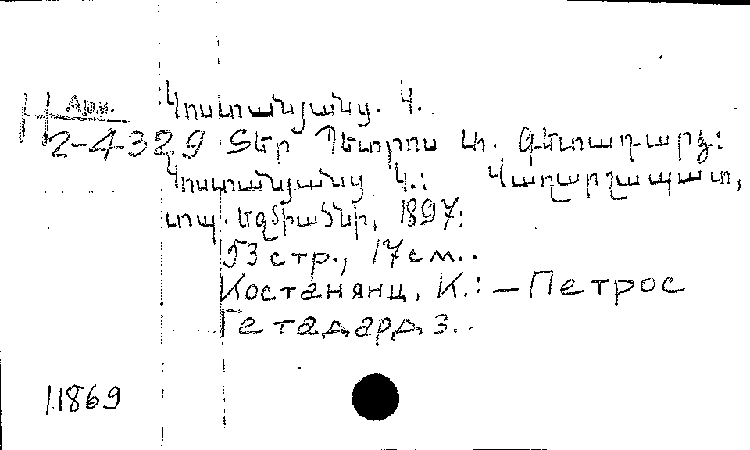 Арм. Կոստանյանց. Կ.
H 2-4329 Տեր Պետրոս Ա. Գետադարձ:
Կոստանյանց Կ.: Վաղարշապատ,
տպ. Էջմիածնի, 1897:
53 стр., 17 см..
Костанянц, К.: – Петрос
Гетадардз..
11869